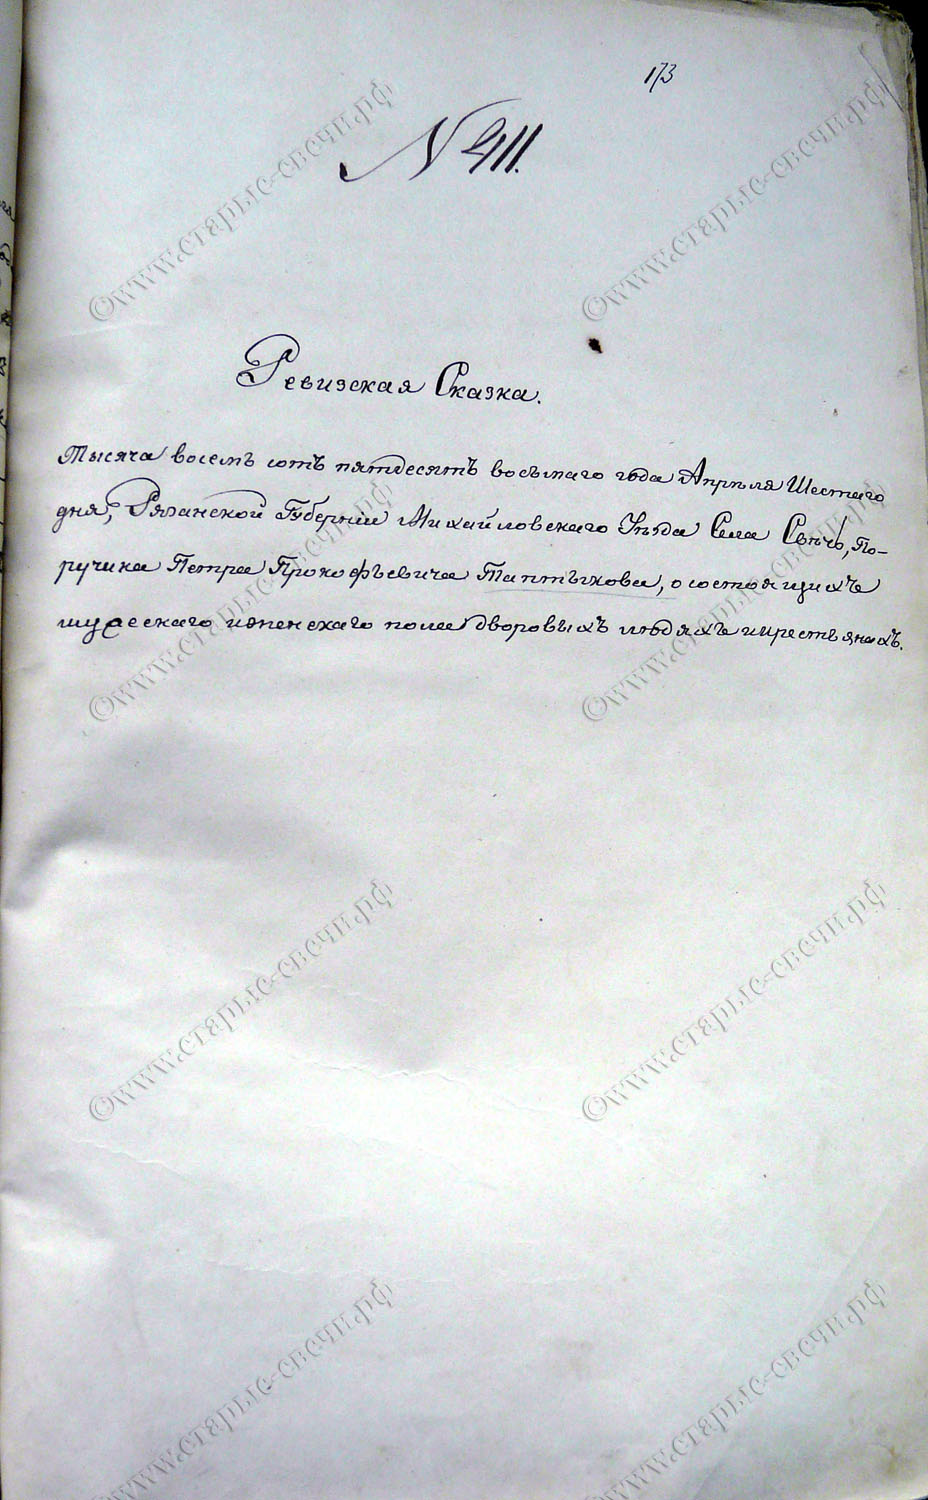 173
№ 411.
Ревизская Сказка.
Тысяча восемъ сотъ пятдесятъ восьмаго года Апрѣля Шестаго
дня, Рязанской Губерніи Михайловскаго Уѣзда Села Свѣчь, По-
ручика Петра Прокофьевича Таптыкова, о состоящихъ
мужескаго и женскаго пола дворовыхъ людяхъ и крестьянахъ.
©www.старые-свечи.рф
©www.старые-свечи.рф
©www.старые-свечи.рф
©www.старые-свечи.рф
©www.старые-свечи.рф
©www.старые-свечи.рф
©www.старые-свечи.рф
©www.старые-свечи.рф